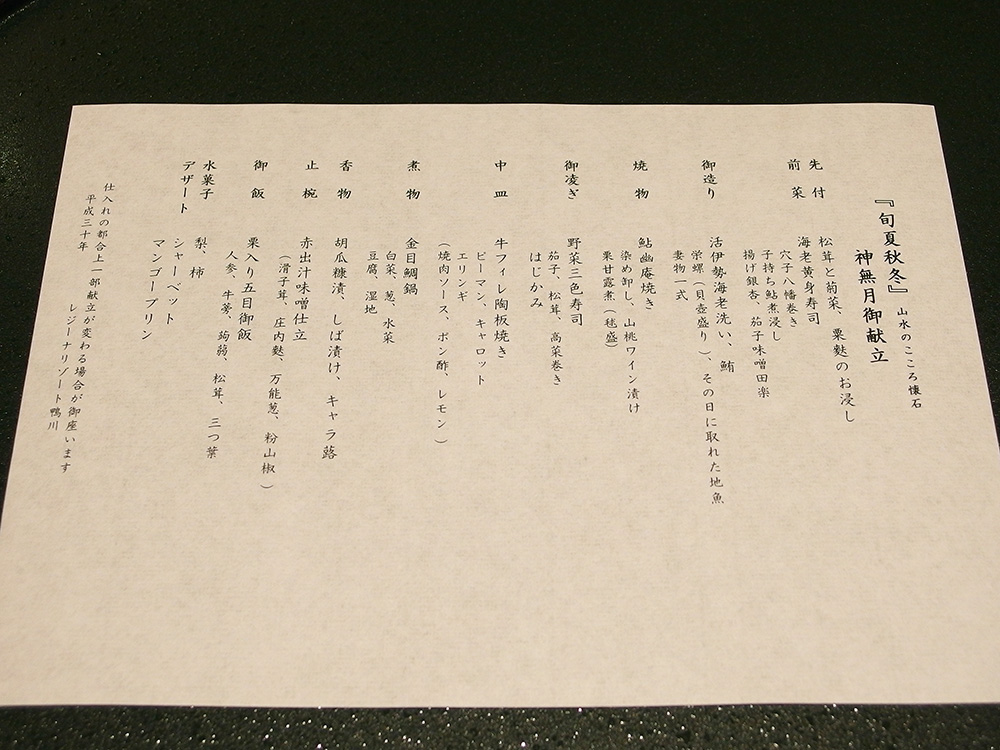 『旬夏秋冬』 山水のこころ懐石
神無月御献立
先付 松茸と菊菜、粟麩のお浸し
前菜 海老黄身寿司
穴子八幡巻き
子持ち鮎煮浸し
揚げ銀杏、茄子味噌田楽
御造り 活伊勢海老洗い、鮪
栄螺（貝壺盛り）、その日に取れた地魚
妻物一式
焼物 鮎幽庵焼き
染め卸し、山桃ワイン漬け
栗甘露煮（毬盛）
御凌ぎ 野菜三色寿司
茄子、松茸、高菜巻き
はじかみ
中皿 牛フィレ陶板焼き
ピーマン、キャロット
エリンギ
（焼肉ソース、ポン酢、レモン）
煮物 金目鯛鍋
白菜、葱、水菜
豆腐、湿地
香物 胡瓜糠漬、しば漬け、キャラ蕗
止椀 赤出汁味噌仕立
（滑子茸、庄内麩、万能葱、粉山椒）
御飯 栗入り五目御飯
人参、牛蒡、蒟蒻、松茸、三つ葉
水菓子 梨、柿
デザート シャーベット
マンゴープリン
仕入れの都合上一部献立が変わる場合が御座います
平成三十年 レジーナリゾート鴨川